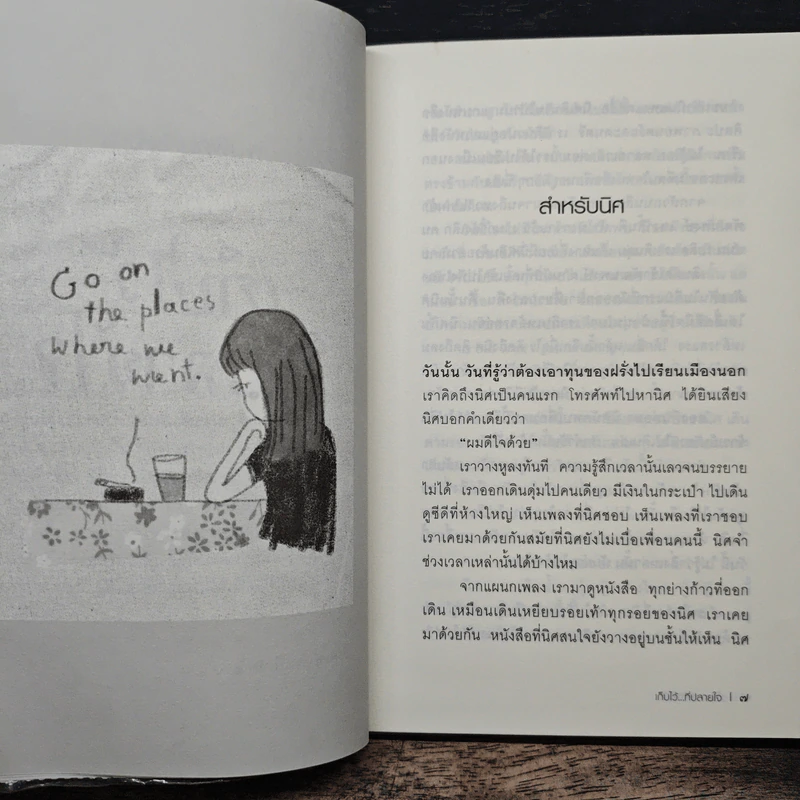 Go on
the places
where we
went.
สำหรับนิศ
วันนั้น วันที่รู้ว่าต้องเอาทุนของฝรั่งไปเรียนเมืองนอก
เราคิดถึงนิศเป็นคนแรก โทรศัพท์ไปหานิศ ได้ยินเสียง
นิศบอกคำเดียวว่า
“ผมดีใจด้วย”
เราวางหูลงทันที ความรู้สึกเวลานั้นเลวจนบรรยาย
ไม่ได้ เราออกเดินดุ่มไปคนเดียว มีเงินในกระเป๋า ไปเดิน
ดูซีดีที่ห้างใหญ่ เห็นเพลงที่นิศชอบ เห็นเพลงที่เราชอบ
เราเคยมาด้วยกันสมัยที่นิศยังไม่เบื่อเพื่อนคนนี้ นิศจำ
ช่วงเวลาเหล่านั้นได้บ้างไหม
จากแผนกเพลง เรามาดูหนังสือ ทุกย่างก้าวที่ออก
เดิน เหมือนเดินเหยียบรอยเท้าทุกรอยของนิศ เราเคย
มาด้วยกัน หนังสือที่นิศสนใจยังวางอยู่บนชั้นให้เห็น นิศ
เก็บไว้...ที่ปลายใจ | ๗